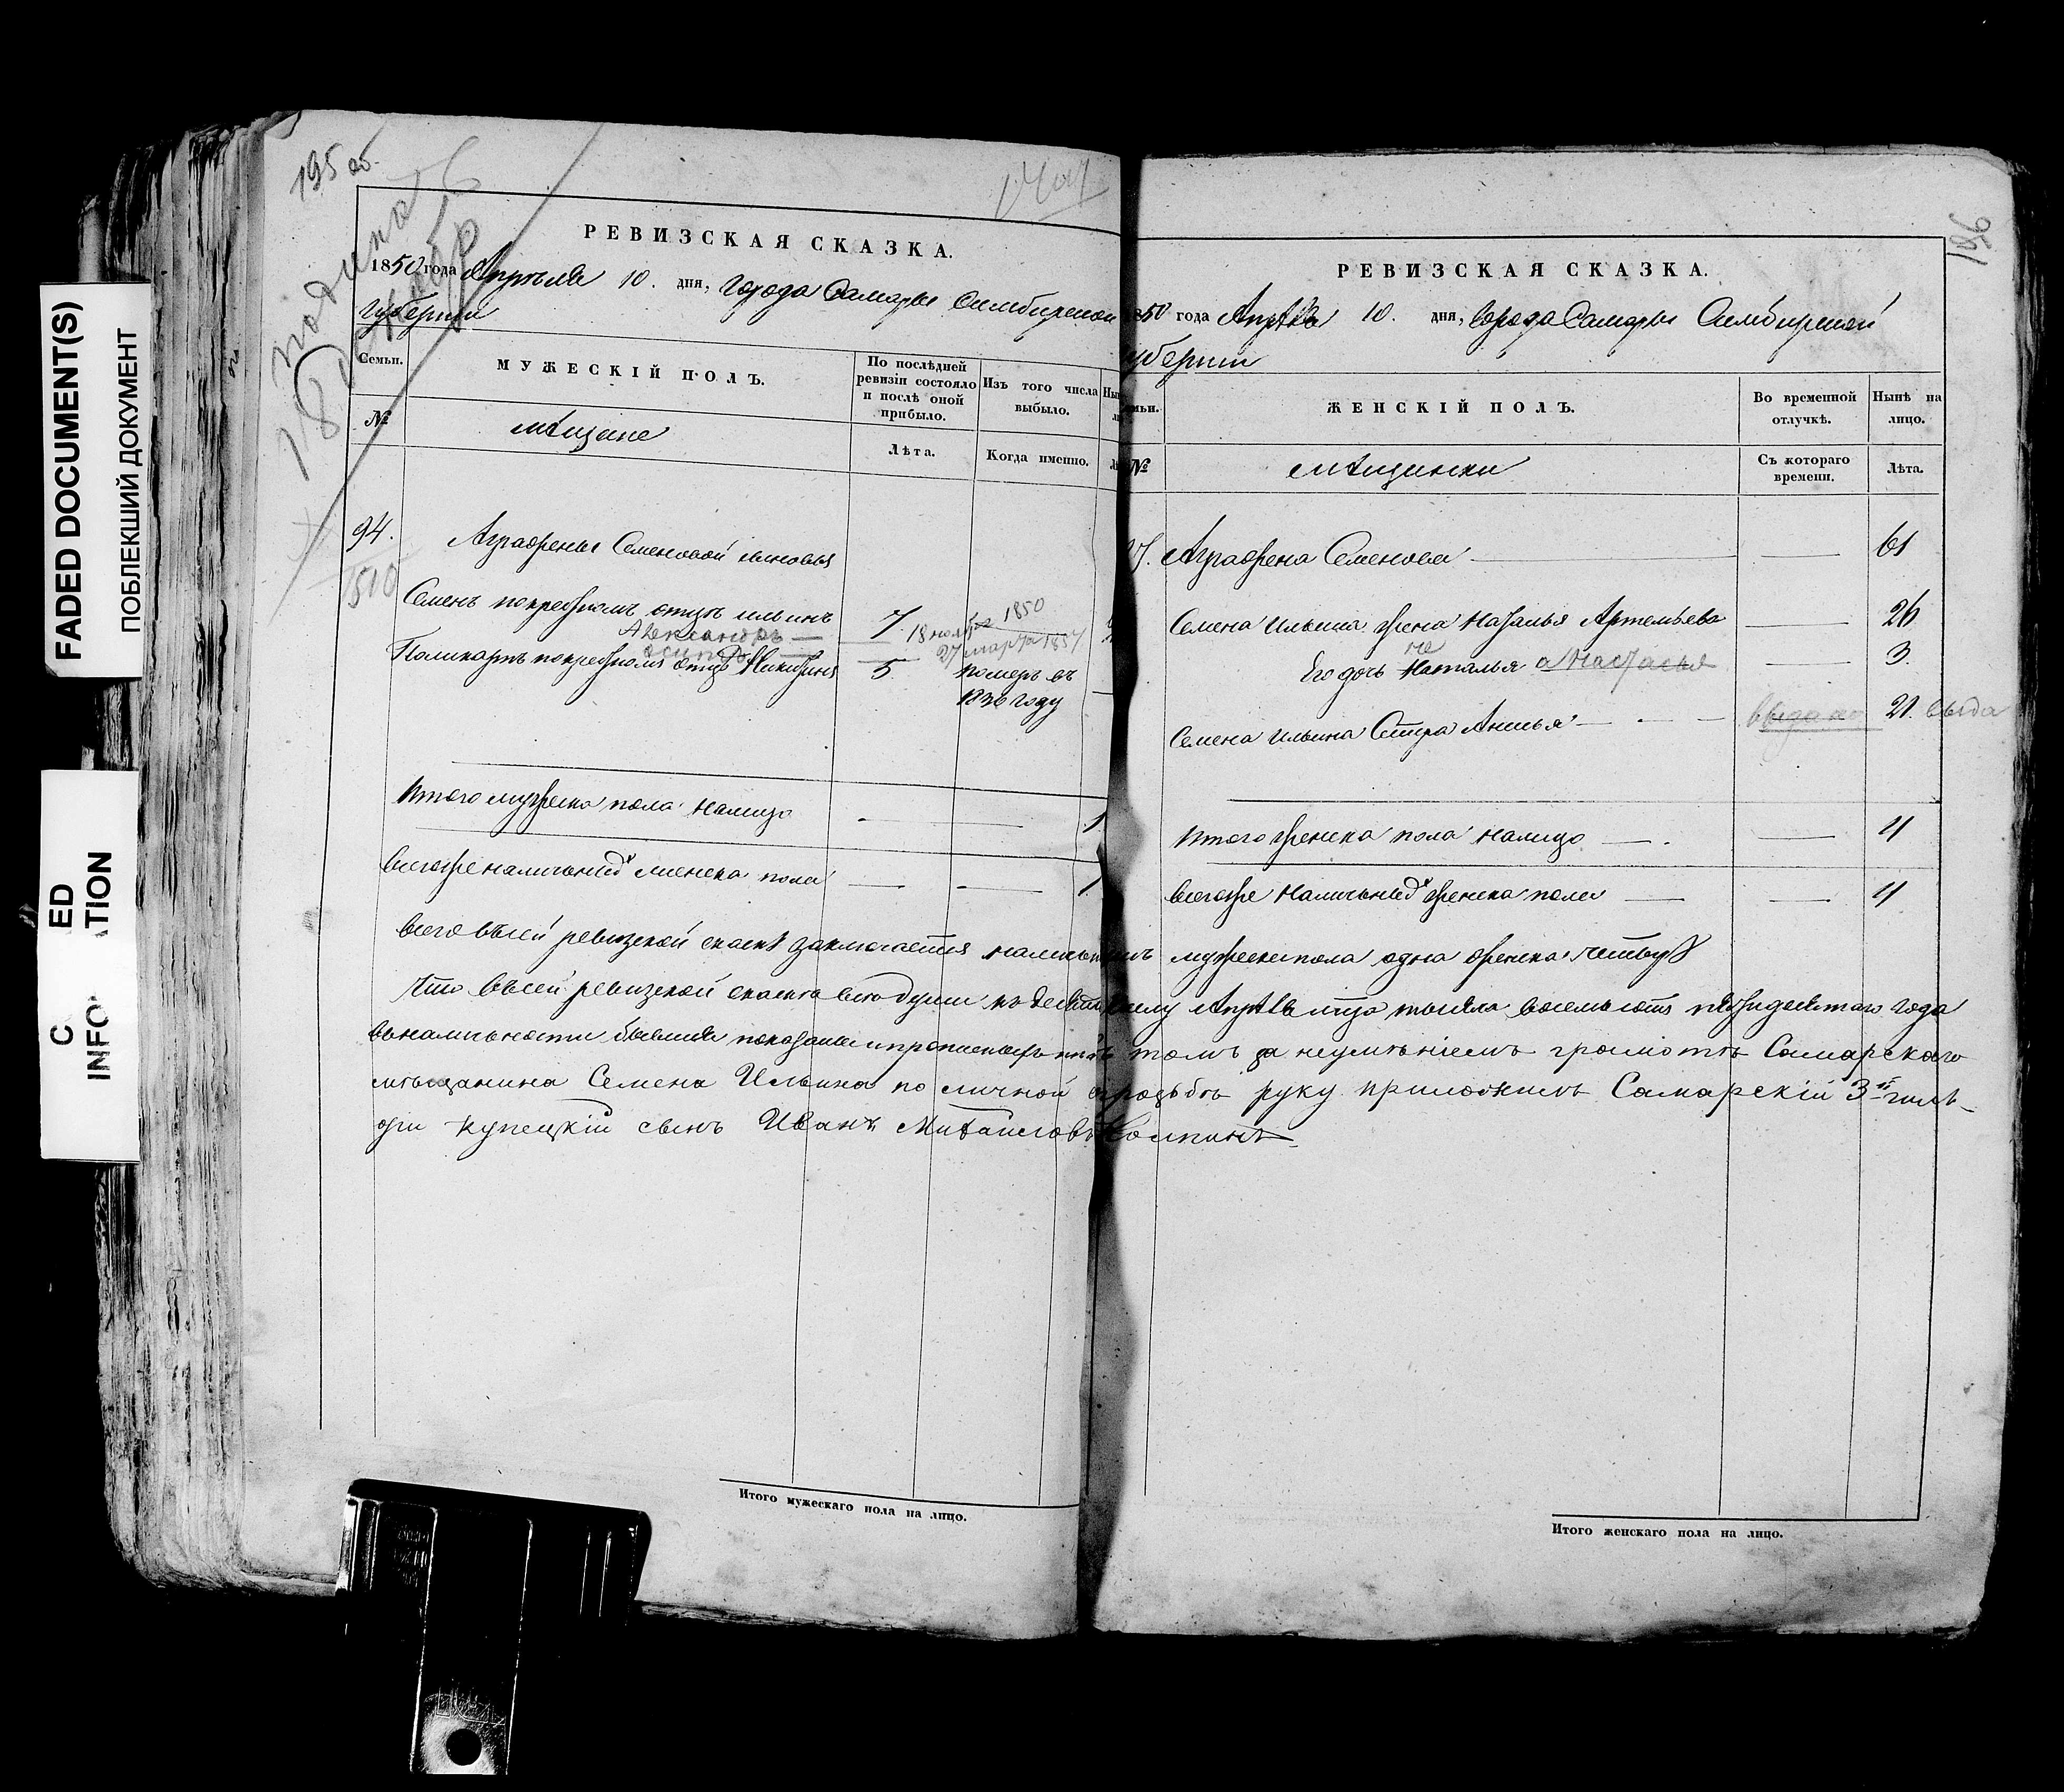 FADED DOCUMENT(S)
ПОБЛЕКШИЙ ДОКУМЕНТ
195 об.
РЕВИЗСКАЯ СКАЗКА.
1850 года Апреля 10. дня, Города Самары Симбирской
губернии
Семьи.
МУЖЕСКІЙ ПОЛЪ.
По послѣдней
ревизіи состояло
и послѣ оной
прибыло.
Изъ того числа
выбыло.
№
мѣщане
Лѣта.
Когда именно.
94.
Аграфены Семеновой сыновья
1510
Семенъ покрестномъ отцѣ ильинъ 7
18 ноября 1850
Александръ —
27 марта 1857
осипъ
Поликарпъ покрестномъ отцѣ Никитинъ 5 померъ въ
1836 году
Итого мужеска пола налицо 1
Всего же наличныхъ мужеска пола 1
Итого мужескаго пола на лицо.
196
РЕВИЗСКАЯ СКАЗКА.
1850 года Апрѣля 10. дня, Города Самары Симбирской
губерніи
ЖЕНСКІЙ ПОЛЪ.
Во временной
отлучкѣ.
Нынѣ на
лицо.
№
мѣщанки
Съ котораго
времени.
Лѣта.
Аграфена Семенова — — 61
Семена Ильина жена Наталья Артемьева — 26
Его дочь Наталья анастасья — 3.
Семена Ильина Сестра Анисья — выдана 21. выда
Итого женска пола налицо — — 4
Всего же Наличныхъ женска пола — — 4
Всего въ сей ревизской сказкѣ заключается наличныхъ мужеска пола одна женска четыре
Что въ сей ревизской сказке все души къ десятому числу Апрѣля тысяча восемьсотъ пятидесятаго года
въ наличности бывшия показаны и прописныхъ нѣтъ въ томъ за неумѣніемъ грамотѣ Самарскаго
мѣщанина Семена Ильина по личной прозьбѣ руку приложилъ Самарскій 3й гиль-
діи Купецкій сынъ Иванъ Михаиловъ
Итого женскаго пола на лицо.